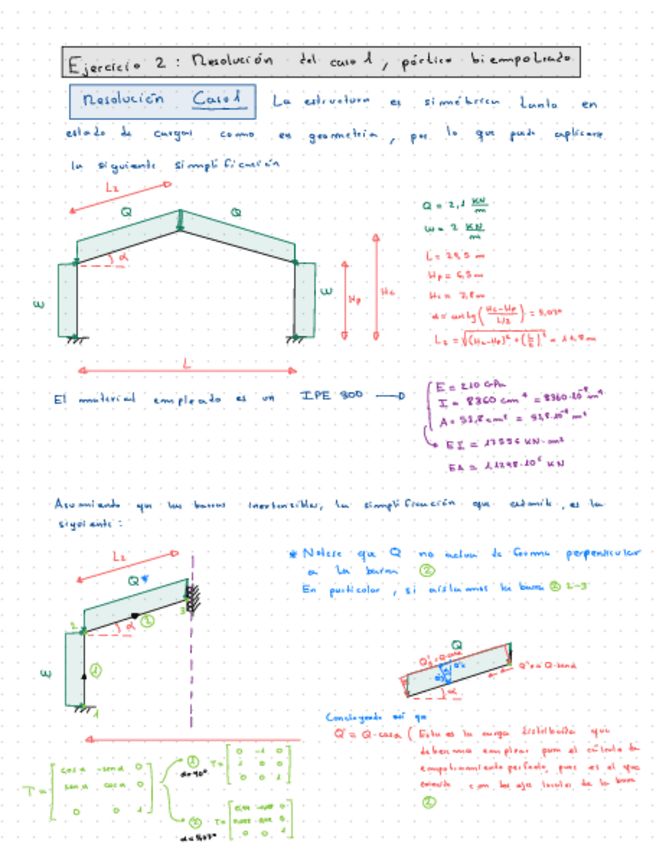 Ejercicio 2 : Resolución del caso 1, pórtico biempotrado
Resolución Caso 1 La estructura es simétrica tanto en
estado de cargas como en geometría, por lo que puedo aplicar
la siguiente simplificación
L2
Q Q
α
w w
Hp Hc
L
Q = 2,1 KN/m
w = 2 KN/m
L = 25,5 m
α = arctg((Hc-Hp)/(L/2)) = 5,07º
El material empleado es un IPE 300
E = 210 GPa
I = 8360 cm⁴ = 8360·10⁻⁸ m⁴
A = 53,8 cm² = 53,8·10⁻⁴ m²
EI = 17556 KN·m²
EA = 1,1298·10⁶ KN
Asumiendo que las barras inextensibles, la simplificación que es la
siguiente :
L2
Q*
2 α 2 3
w 1
1
* Notese que Q no actua de forma perpendicular
a la barra 2
En particular, si aislamos la barra 2 2-3
Q
α
Q'' = Q·senα
Concluyendo así que
Q' = Q·cosα ( Esta es la carga distribuida que
debemos emplear para el cálculo de
empotramiento perfecto, pues es el que
con los ejes locales de la barra
2
T = cosα -senα 0
senα cosα 0
0 0 1
1 α=90º T = 0 -1 0
1 0 0
0 0 1
2 α=5,07º T =
0 0 1